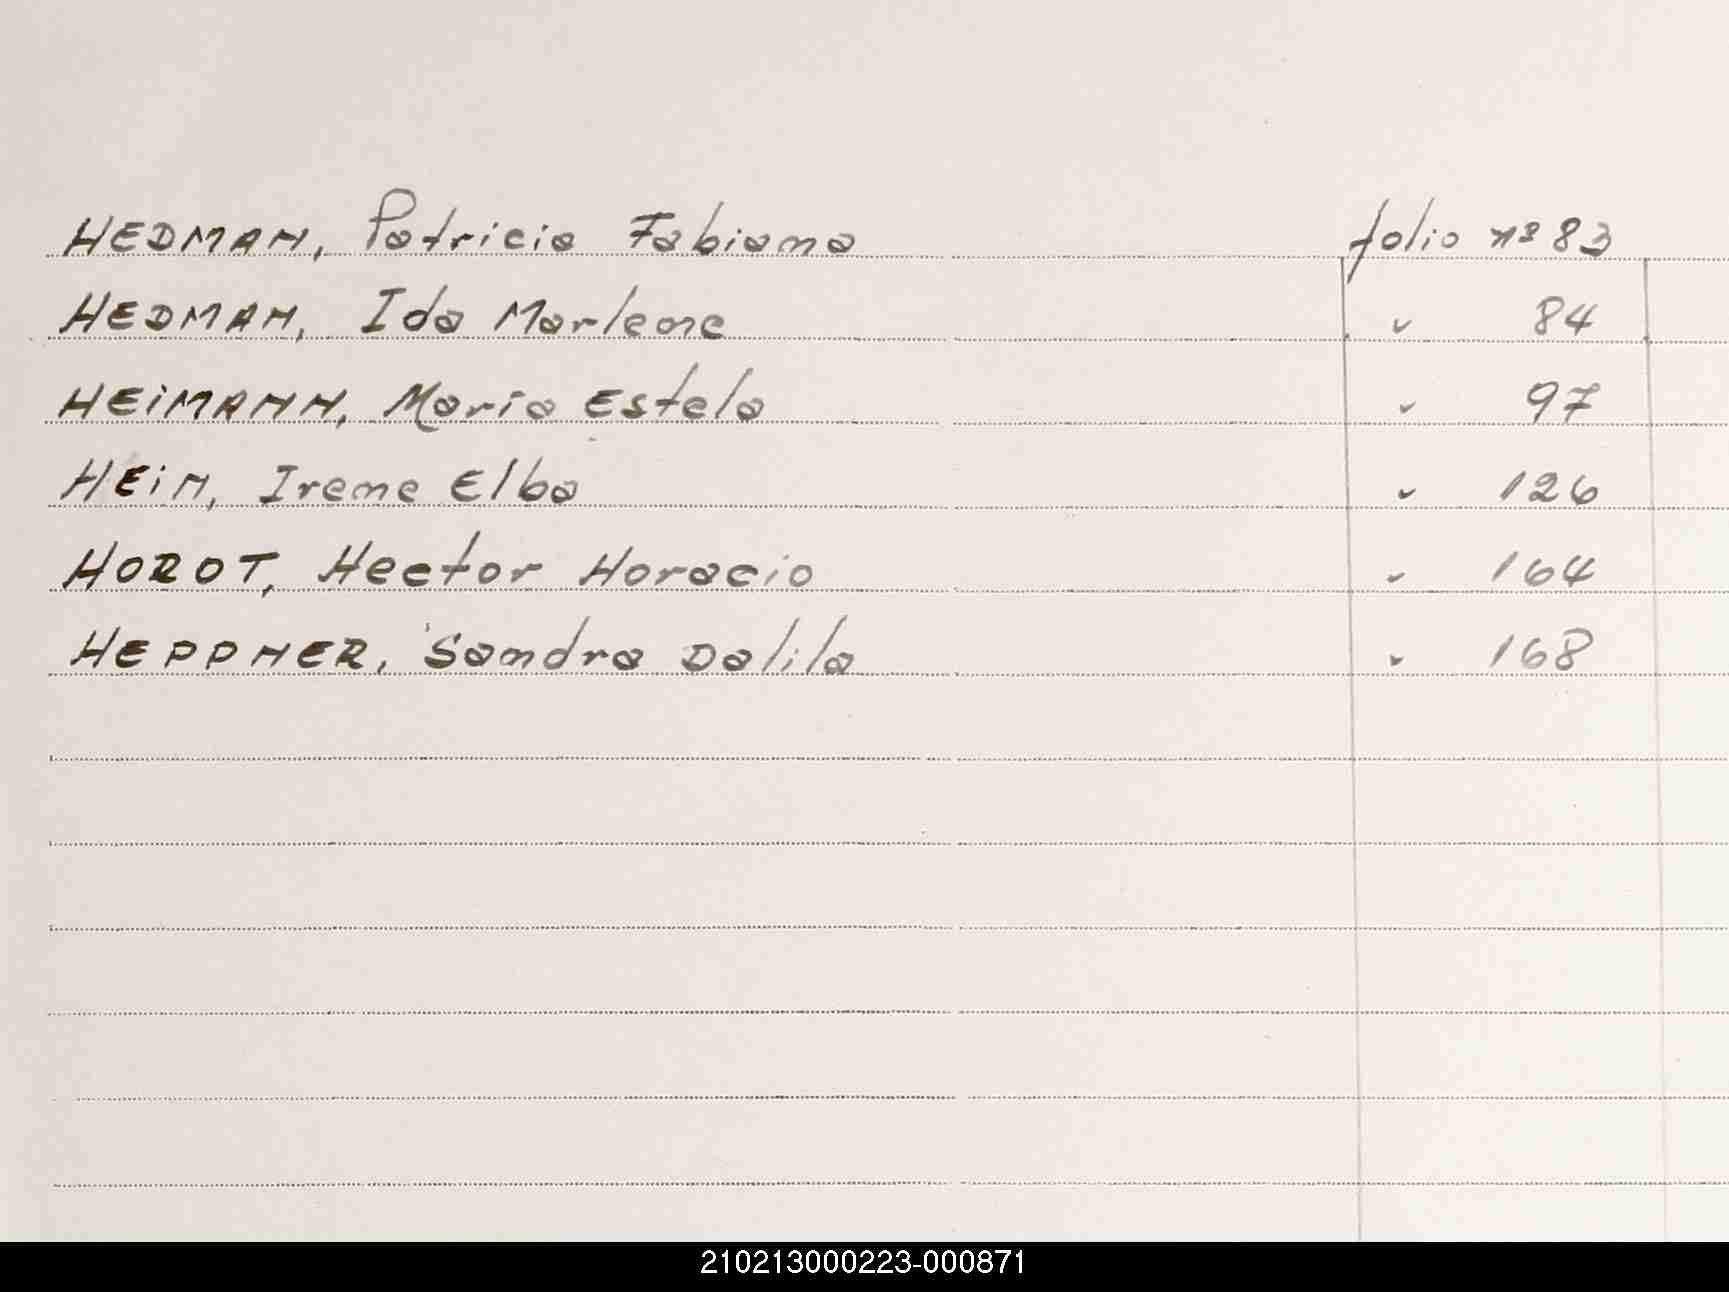 HEDMAN, Patricia Fabiana folio nº 83
HEDMAN, Ida Marlene " 84
HEiMANN, Maria Estela " 97
HEiN, Irene Elba " 126
HOROT, Hector Horacio " 164
HEPPNER, Sandra Dalila " 168
210213000223-000871